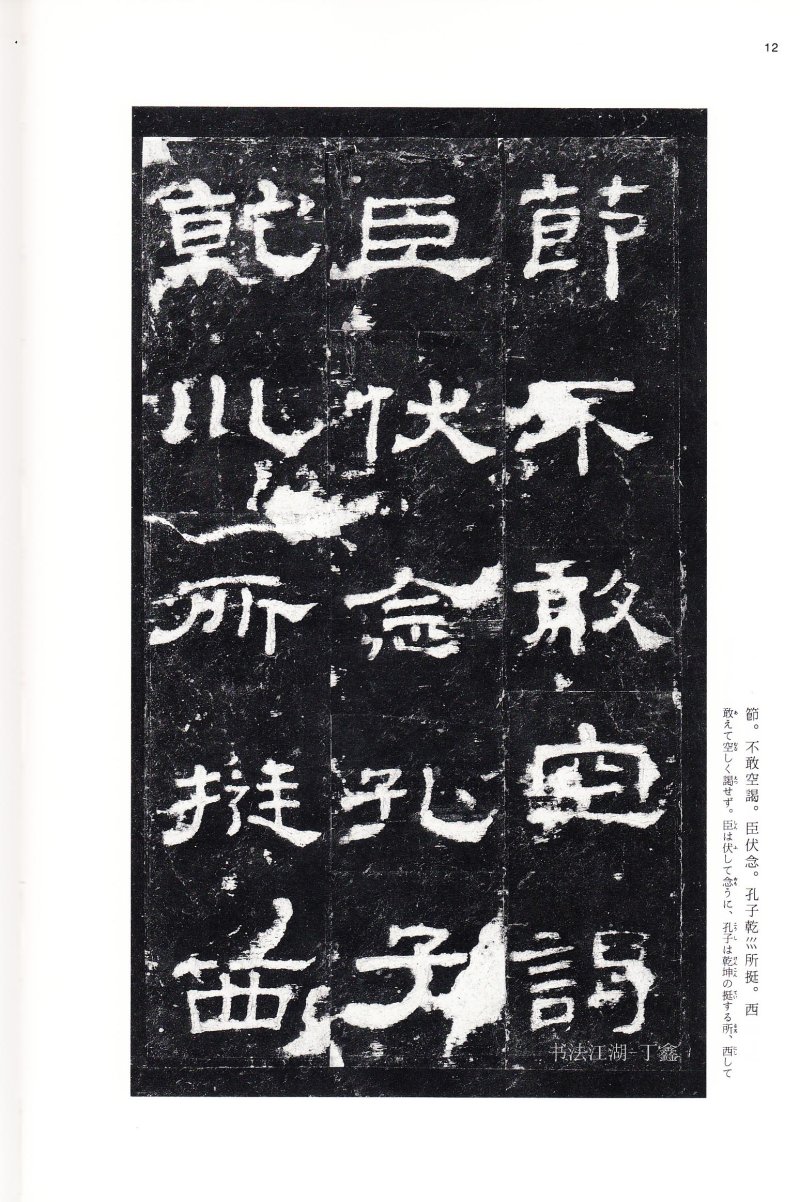 12
節不敢空謁
臣伏念孔子
乾巛所挺西
节。不敢空謁。臣伏念。孔子乾巛所挺。西
敢えて空しく謁せず。臣は伏して念うに、孔子は乾坤の挺する所、西して
书法江湖-丁鑫